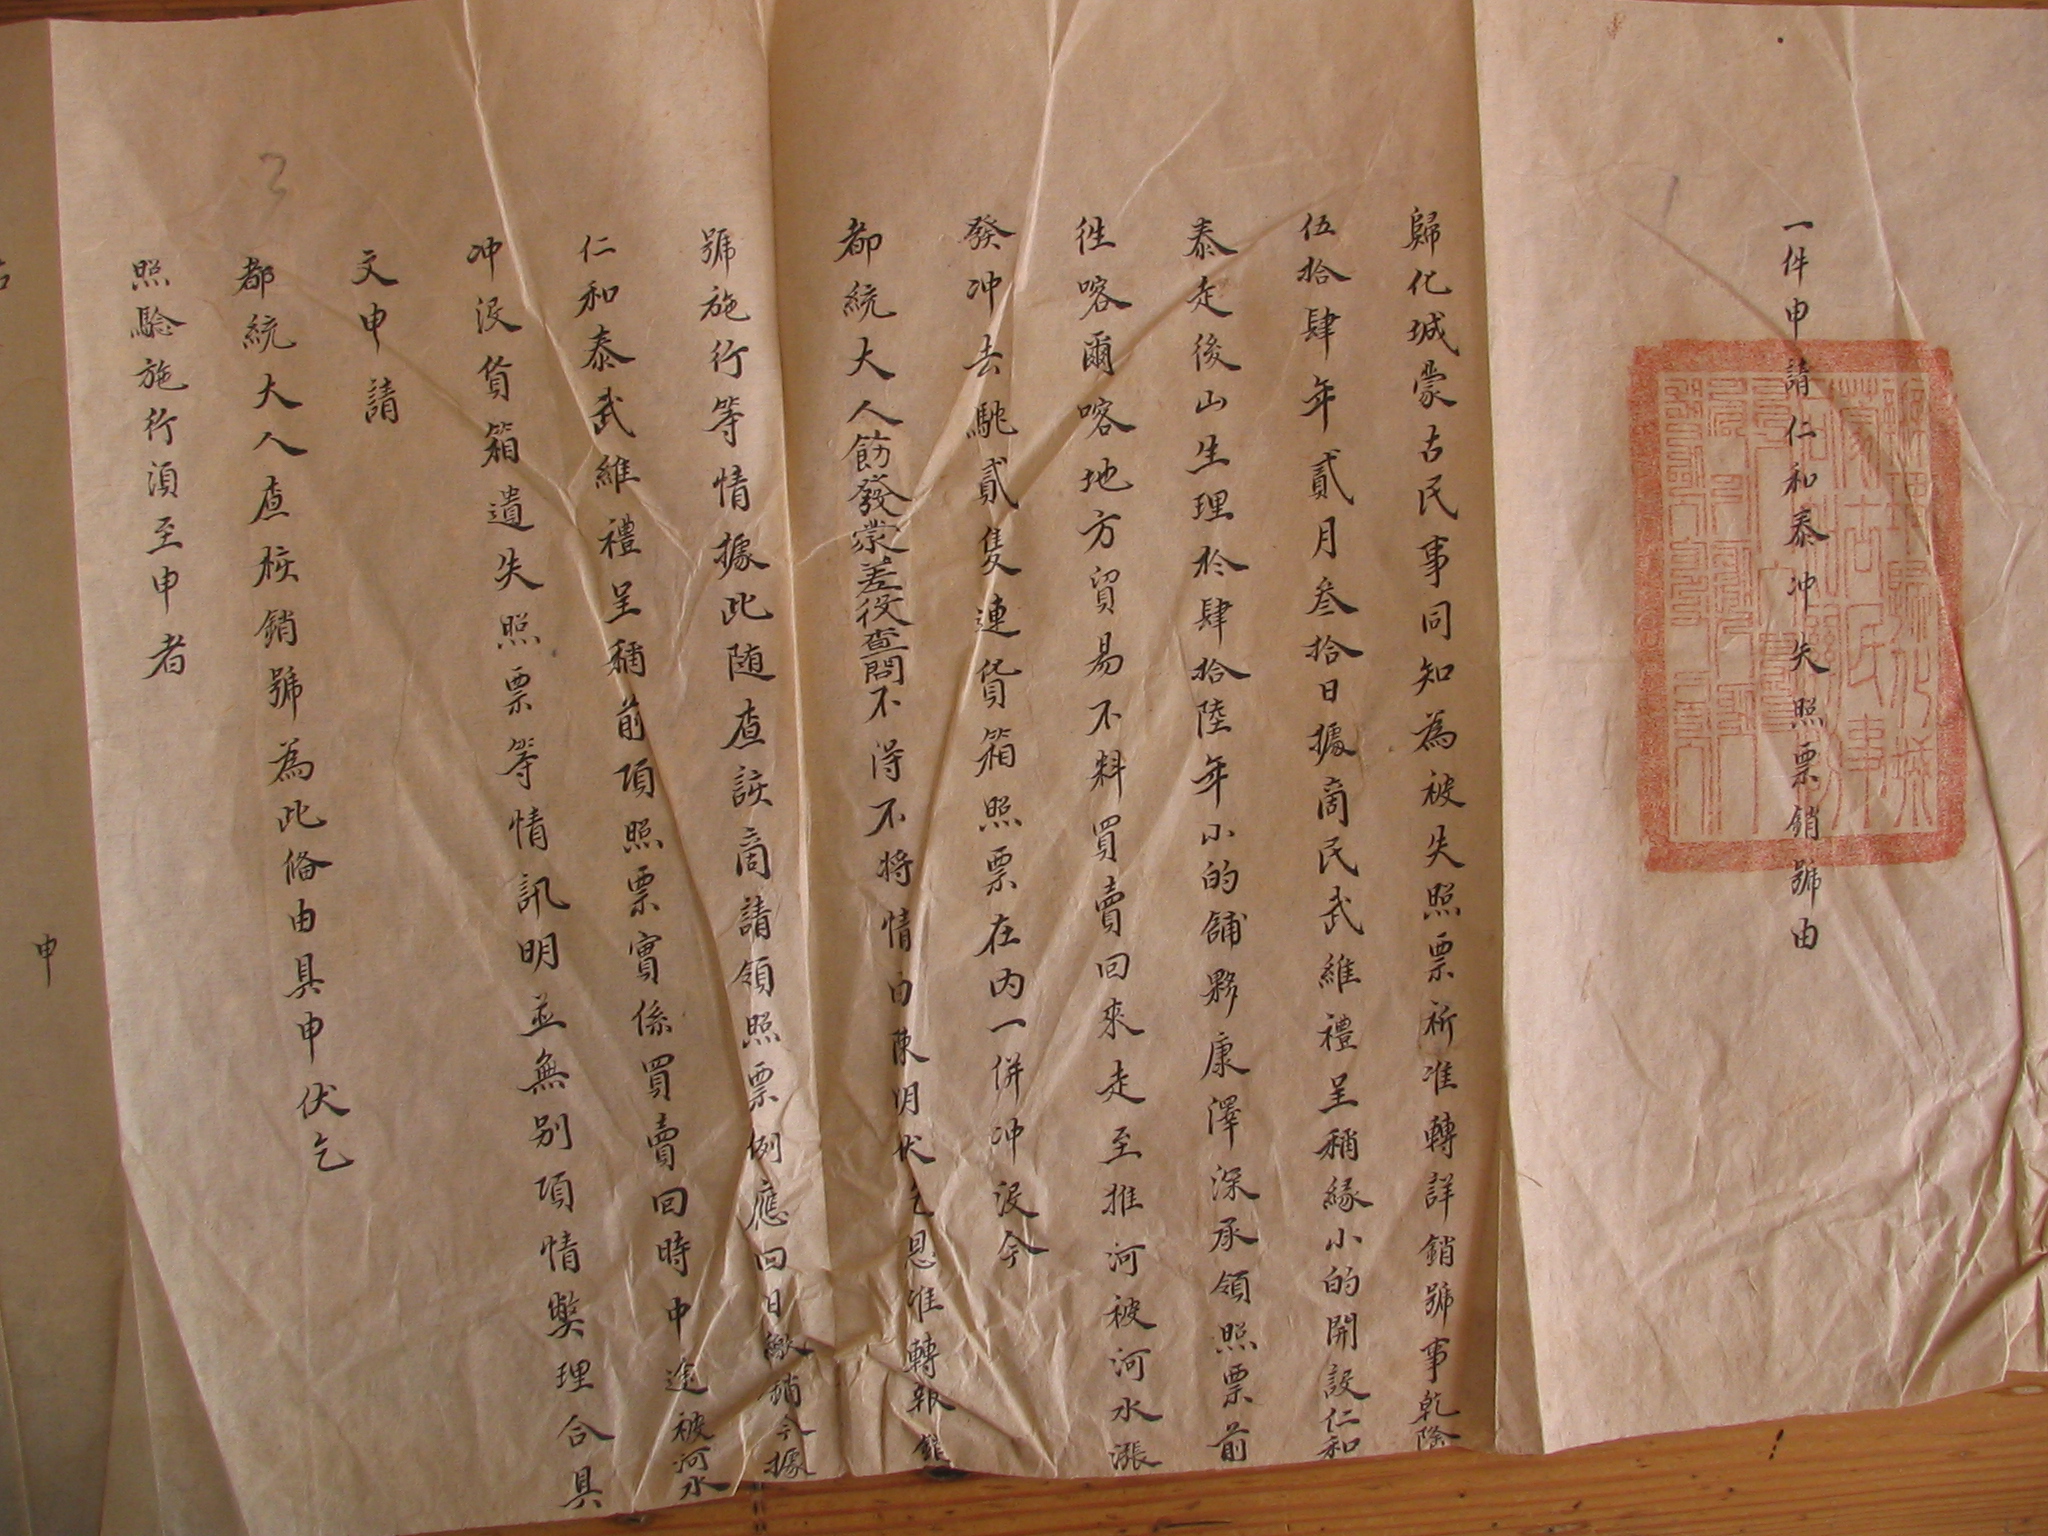 一件申請仁和泰冲失照票銷號由
歸化城蒙古民事同知為被失照票祈准轉詳銷號事乾隆
伍拾肆年貳月叁拾日據啇民武維禮呈稱緣小的開設仁和
泰走後山生理於肆拾陸年小的舖夥康澤深承領照票前
徃喀爾喀地方貿易不料買賣回來走至推河被河水漲
發冲去駝貳隻連貨箱照票在內一併冲沒今
都統大人飭發棠差役查問不得不將情由陳明伏乞恩准轉報銷
號施行等情據此随查該啇請領照票例應回日繳銷今據
仁和泰武維禮呈稱前項照票實係買賣回時中途被河水
冲沒貨箱遺失照票等情訊明並無别項情獘理合具
文申請
都統大人查核銷號為此俻由具申伏乞
照驗施行湏至申者
申